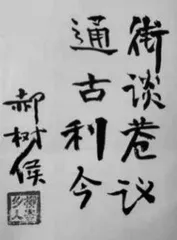 街谈巷议
通古利今
郝树侯